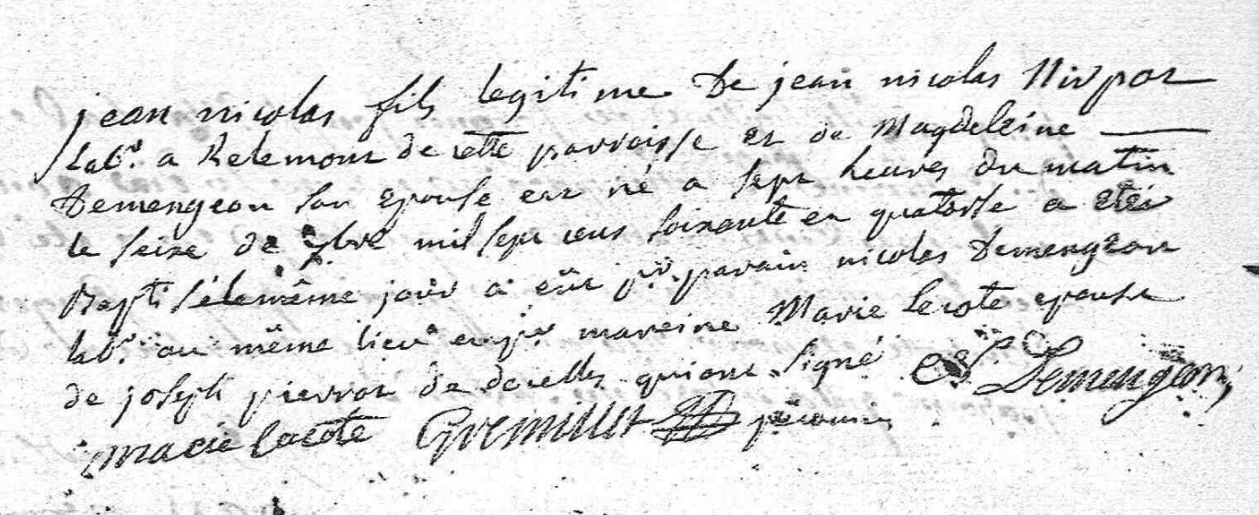 jean nicolas fils legitime De jean nicolas Nirpot
labr. a Relemont de cette parroisse et de Magdeleine
Demengeon son epouse est né a sept heures du matin
le seize de mil sept cens soixante et quatorse a eté
Baptisé le même jour a eut pr. parain nicolas Demengeon
labr. au même lieu et pr mareine Marie lecote epouse
de joseph pierrot de qui ont signé Demengeon
marie lacote Gremillet